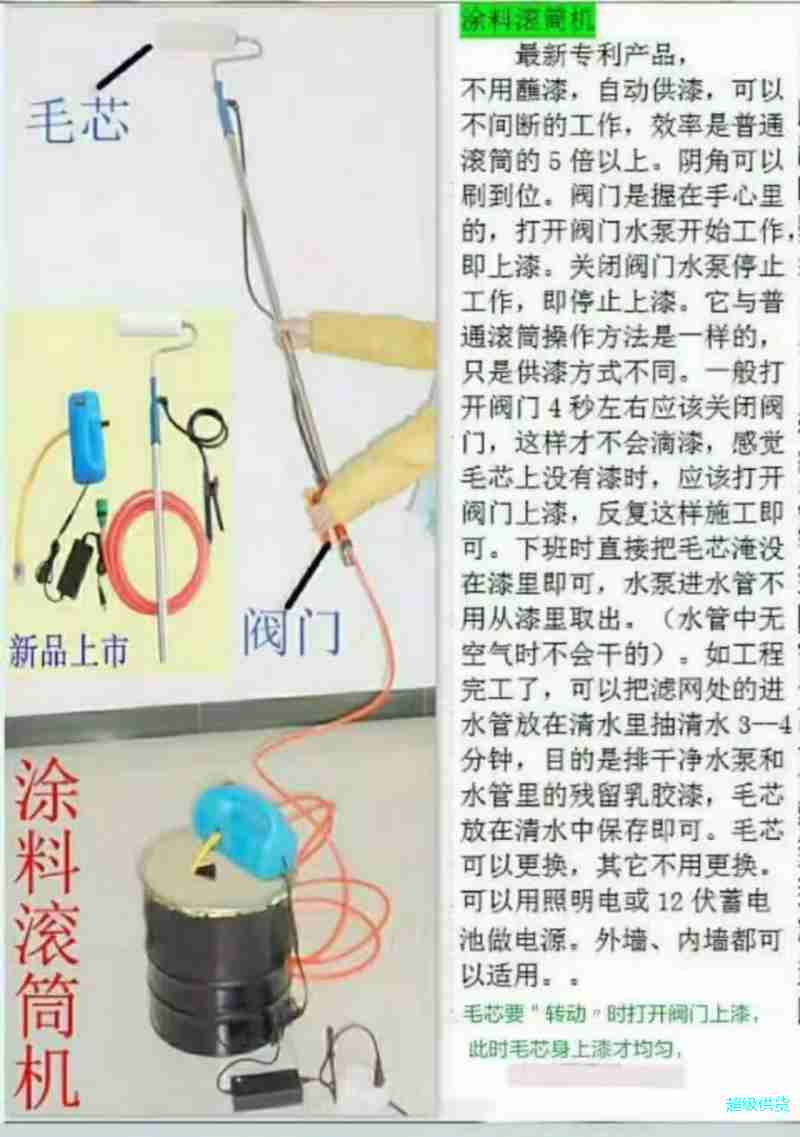 毛芯
新品上市
阀门
涂料滚筒机
涂料滚筒机
最新专利产品，
不用蘸漆，自动供漆，可以
不间断的工作，效率是普通
滚筒的5倍以上。阴角可以
刷到位。阀门是握在手心里
的，打开阀门水泵开始工作，
即上漆。关闭阀门水泵停止
工作，即停止上漆。它与普
通滚筒操作方法是一样的，
只是供漆方式不同。一般打
开阀门4秒左右应该关闭阀
门，这样才不会滴漆，感觉
毛芯上没有漆时，应该打开
阀门上漆，反复这样施工即
可。下班时直接把毛芯淹没
在漆里即可，水泵进水管不
用从漆里取出。（水管中无
空气时不会干的）。如工程
完工了，可以把滤网处的进
水管放在清水里抽清水3--4
分钟，目的是排干净水泵和
水管里的残留乳胶漆，毛芯
放在清水中保存即可。毛芯
可以更换，其它不用更换。
可以用照明电或12伏蓄电
池做电源。外墙、内墙都可
以适用。。
毛芯要"转动"时打开阀门上漆，
此时毛芯身上漆才均匀，
超级供货